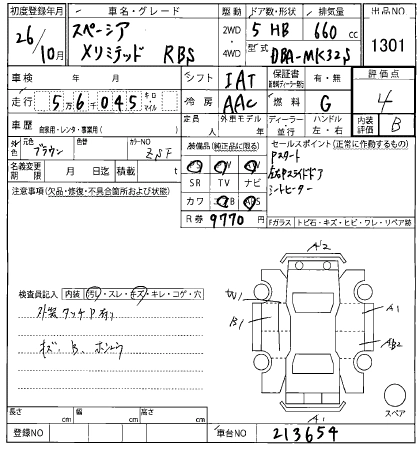 初度登録年月
車名・グレード
駆動
ドア数・形状
排気量
出品NO
26/10月
スペーシア
Xリミテッド RBS
2WD
4WD
5 HB
660 cc
型式
DBA-MK32S
1301
車検 年 月
シフト
IAT
保証書
有・無
評価点
4
走行
56045
キロ・マイル
冷房
AAC
燃料
G
内装評価
B
車歴
自家用・レンタ・事業用( )
定員
人
外車モデル
年
ディーラー
並行
ハンドル
左・右
外色
元色
ブラウン
色替
カラーNO
ZSF
装備品(純正品に限る)
PS AW
SR TV ナビ
カワ ABS
セールスポイント(正常に作動するもの)
Pスタート
左右Pスライドドア
シートヒーター
名義変更期限
月 日迄
積載
t
R券
9770 円
注意事項(欠品・修復・不具合箇所および状態)
Fガラス
トビ石・キズ・ヒビ・ワレ・リペア跡
A2
検査員記入
内装
ヨゴレ・スレ・キズ・キレ・コゲ・穴
W1
B1
A1
B2
外装タッチP有り
スペア
長さ cm
幅 cm
高さ cm
A1
登録NO
車台NO
213654